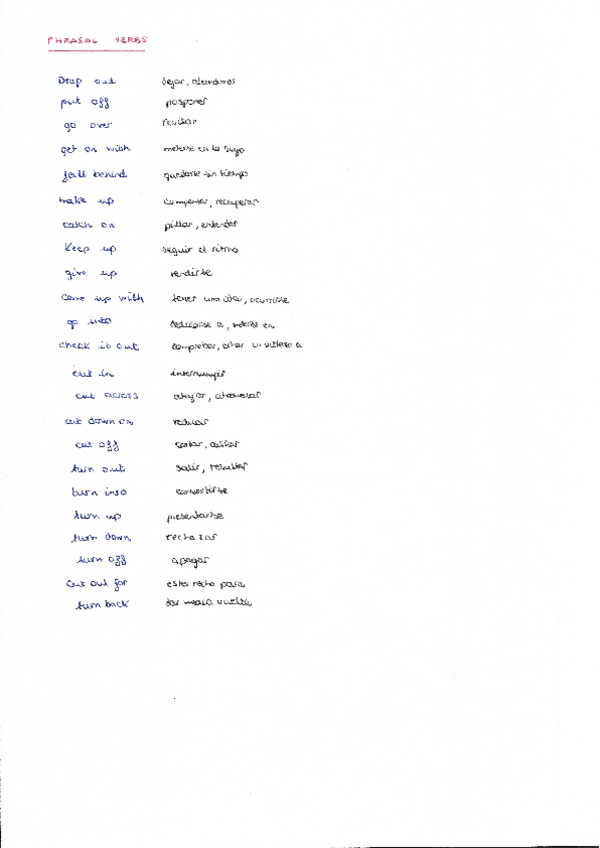 PHRASAL VERBS
Drop out dejar, abandonar
put off posponer
go over revisar
get on with meterse en la
fall behind quedarse sin tiempo
make up compensar, recuperar
catch on pillar, entender
Keep up seguir el ritmo
give up rendirse
come up with tener una idea, ocurrirse
go into dedicarse a, meterse en
check it out comprobar, echar un vistazo a
cut in interrumpir
cut across atajar, atravesar
cut down on reducir
cut off cortar, aislar
turn out salir, resultar
turn into convertirse
turn up presentarse
turn down rechazar
turn off apagar
cut out for estar hecho para
turn back dar media vuelta